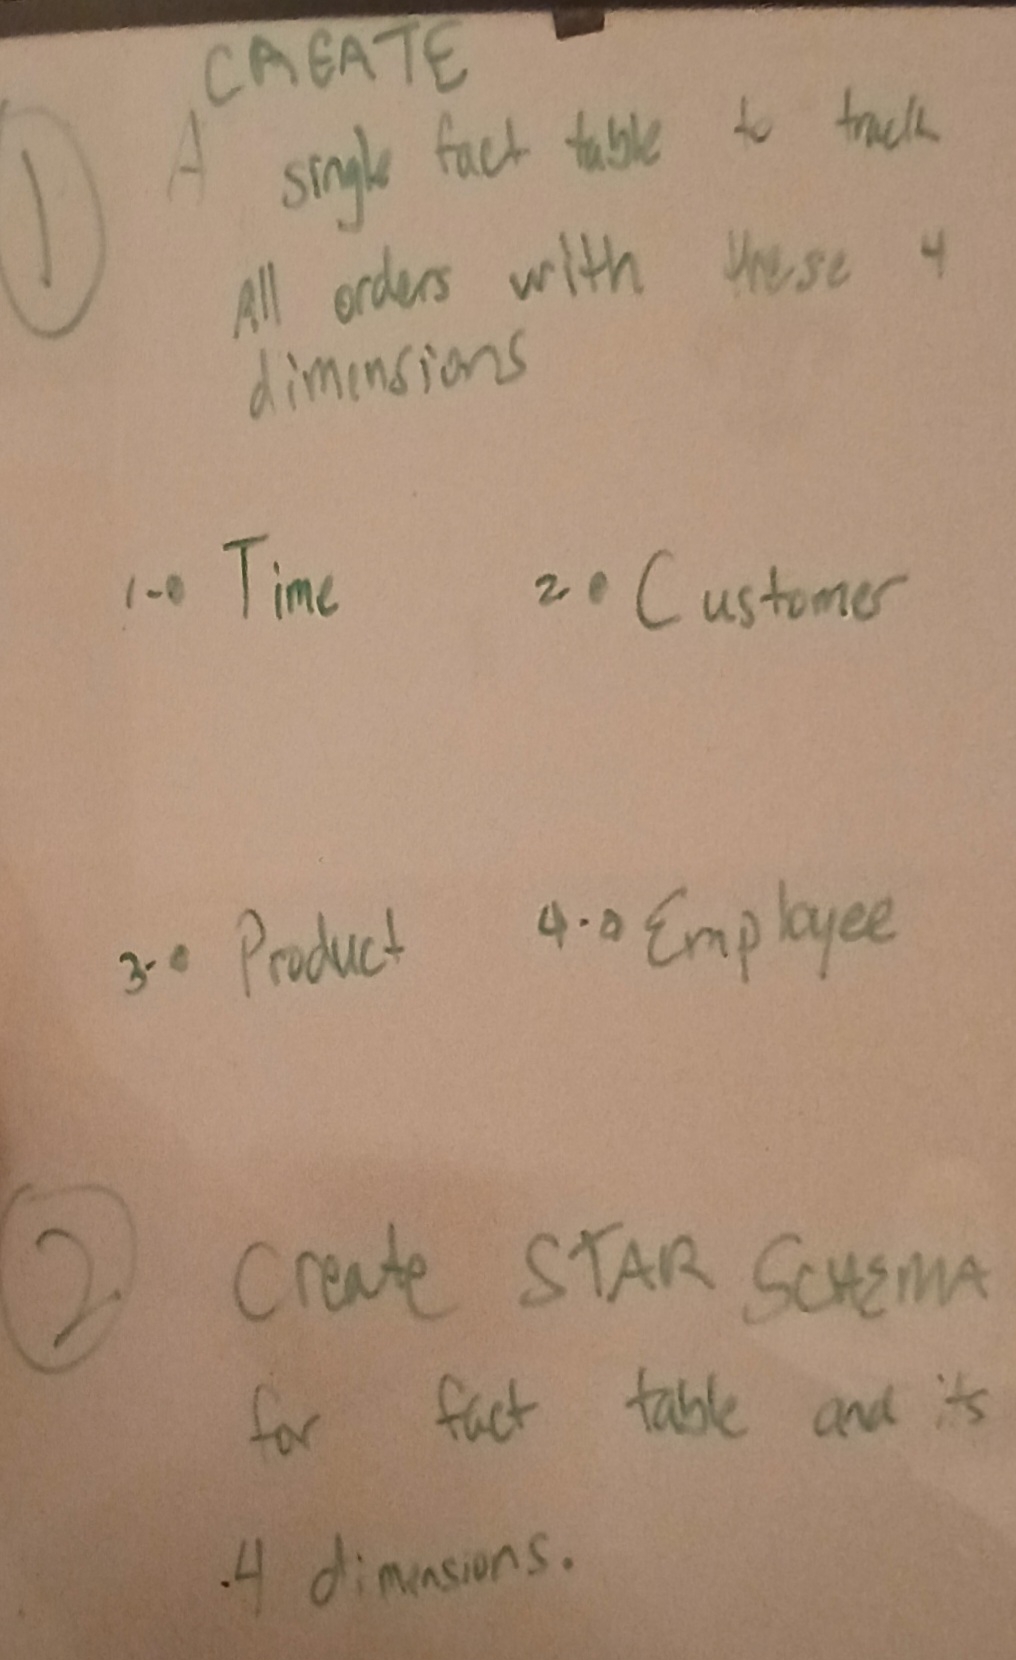 CREATE
1 A single fact table to track
All orders with these 4
dimensions
1-• Time 2. • Customer
3-• Product 4.• Employee
2 Create STAR SCHEMA
for fact table and its
.4 dimensions.